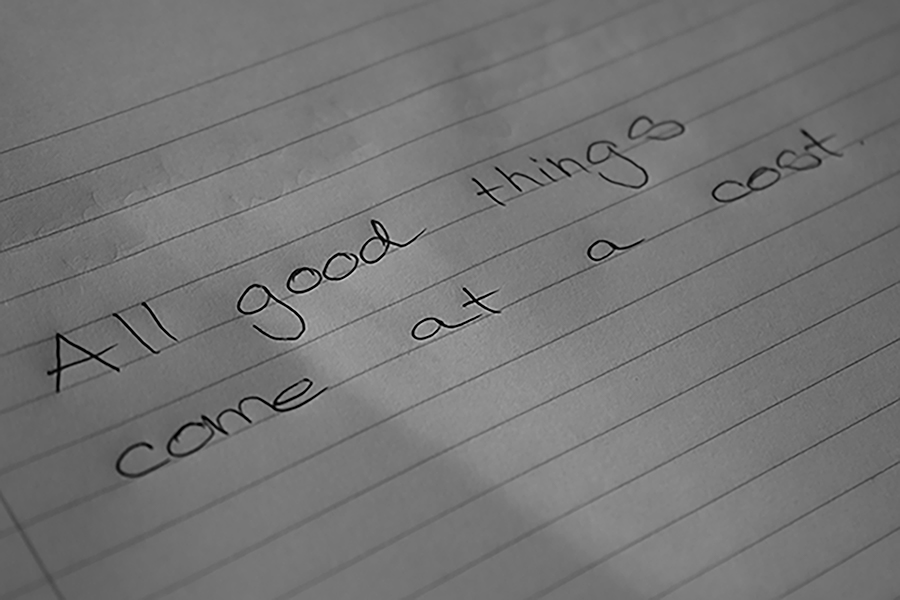 All good things
come at a cost.